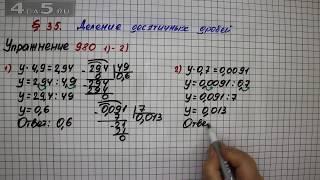 4a5.ru
§ 35. Деление десятичных дробей
Упражнение 980 1)-2)
1) y·4,9=2,94
y=2,94:4,9
y=29,4:49
y=0,6
Ответ: 0,6
29,4 49
294 0,6
0
0,091 7
7 0,013
21
21
0
2) y·0,7=0,0091
y=0,0091:0,7
y=0,091:7
y=0,013
Отве